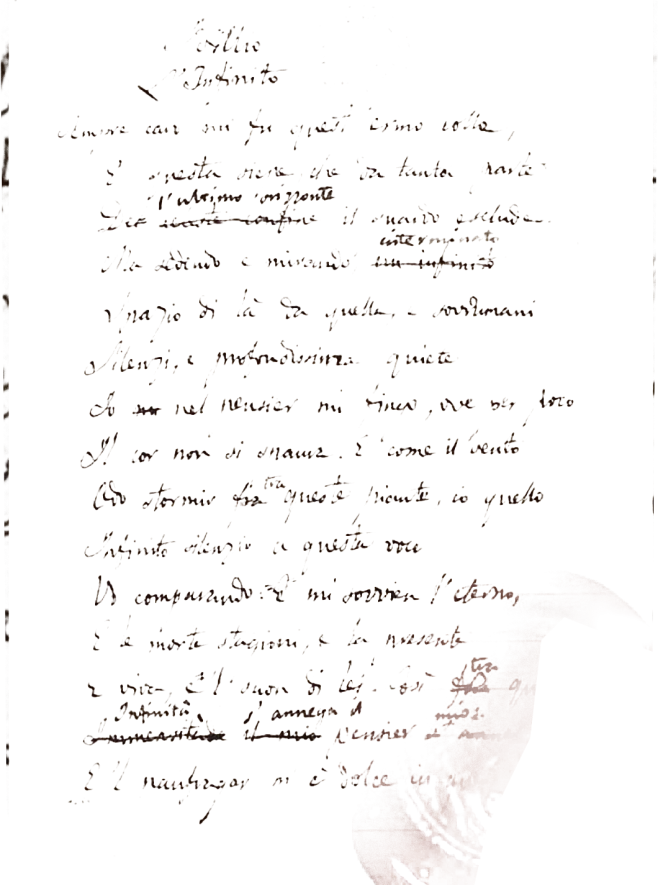 Idillio
L'Infinito
Sempre caro mi fu quest'ermo colle,
E questa siepe, che da tanta parte
l'ultimo orizzonte
De celeste confine il guardo esclude.
interminato
Ma sedendo e mirando un infinito
Spazio di là da quella, e sovrumani
Silenzi, e profondissima quiete
Io nel pensier mi fingo, ove per poco
Il cor non si spaura. E come il vento
tra
Odo stormir fra queste piante, io quello
Infinito silenzio a questa voce
Vo comparando: E mi sovvien l'eterno,
E le morte stagioni, e la presente
tra
E viva, e 'l suon di lei. Così fra
Infinità s'annega il mio
Immensitade il mio pensier
E 'l naufragar m'è dolce in